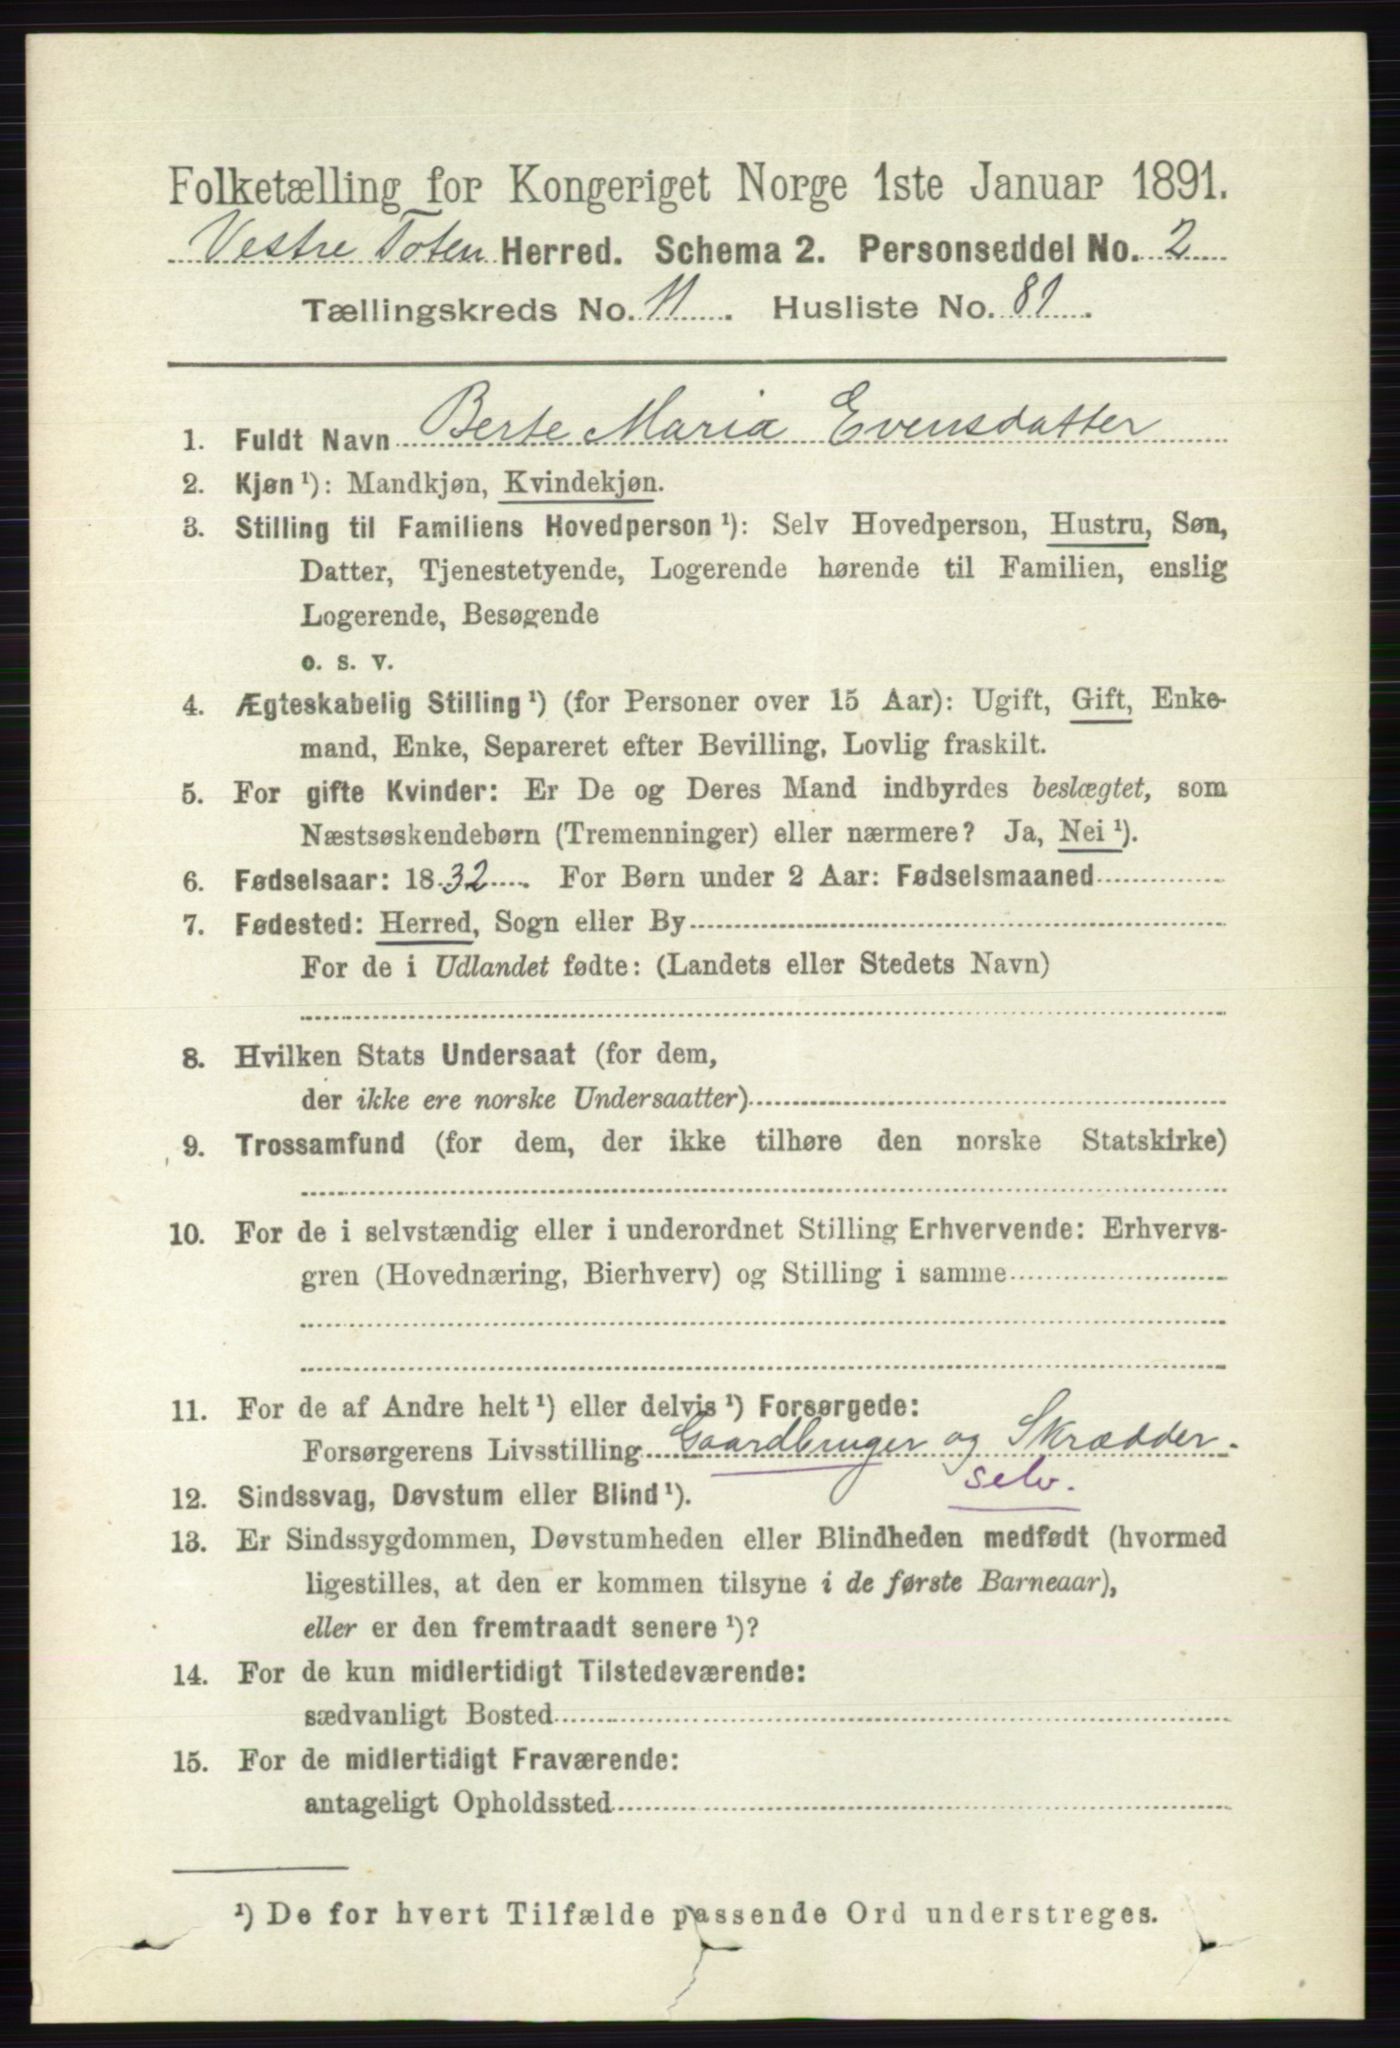 Folketælling for Kongeriget Norge 1ste Januar 1891.
Vestre Toten Herred. Schema 2. Personseddel No. 2
Tællingskreds No. 11. Husliste No. 81.
1. Fuldt Navn Berte Maria Evensdatter
2. Kjøn ¹): Mandkjøn, Kvindekjøn.
3. Stilling til Familiens Hovedperson ¹): Selv Hovedperson, Hustru, Søn,
Datter, Tjenestetyende, Logerende hørende til Familien, enslig
Logerende, Besøgende
o. s. v.
4. Ægteskabelig Stilling ¹) (for Personer over 15 Aar): Ugift, Gift, Enke-
mand, Enke, Separeret efter Bevilling, Lovlig fraskilt.
5. For gifte Kvinder: Er De og Deres Mand indbyrdes beslægtet, som
Næstsøskendebørn (Tremenninger) eller nærmere? Ja, Nei ¹).
6. Fødselsaar: 1832. For Børn under 2 Aar: Fødselsmaaned
7. Fødested: Herred, Sogn eller By
For de i Udlandet fødte: (Landets eller Stedets Navn)
8. Hvilken Stats Undersaat (for dem,
der ikke ere norske Undersaatter)
9. Trossamfund (for dem, der ikke tilhøre den norske Statskirke)
10. For de i selvstændig eller i underordnet Stilling Erhvervende: Erhvervs-
gren (Hovednæring, Bierhverv) og Stilling i samme
11. For de af Andre helt ¹) eller delvis ¹) Forsørgede:
Forsørgerens Livsstilling Gaardbruger og Skrædder.
selv.
12. Sindssvag, Døvstum eller Blind ¹).
13. Er Sindssygdommen, Døvstumheden eller Blindheden medfødt (hvormed
ligestilles, at den er kommen tilsyne i de første Barneaar),
eller er den fremtraadt senere ¹)?
14. For de kun midlertidigt Tilstedeværende:
sædvanligt Bosted
15. For de midlertidigt Fraværende:
antageligt Opholdssted
¹) De for hvert Tilfælde passende Ord understreges.